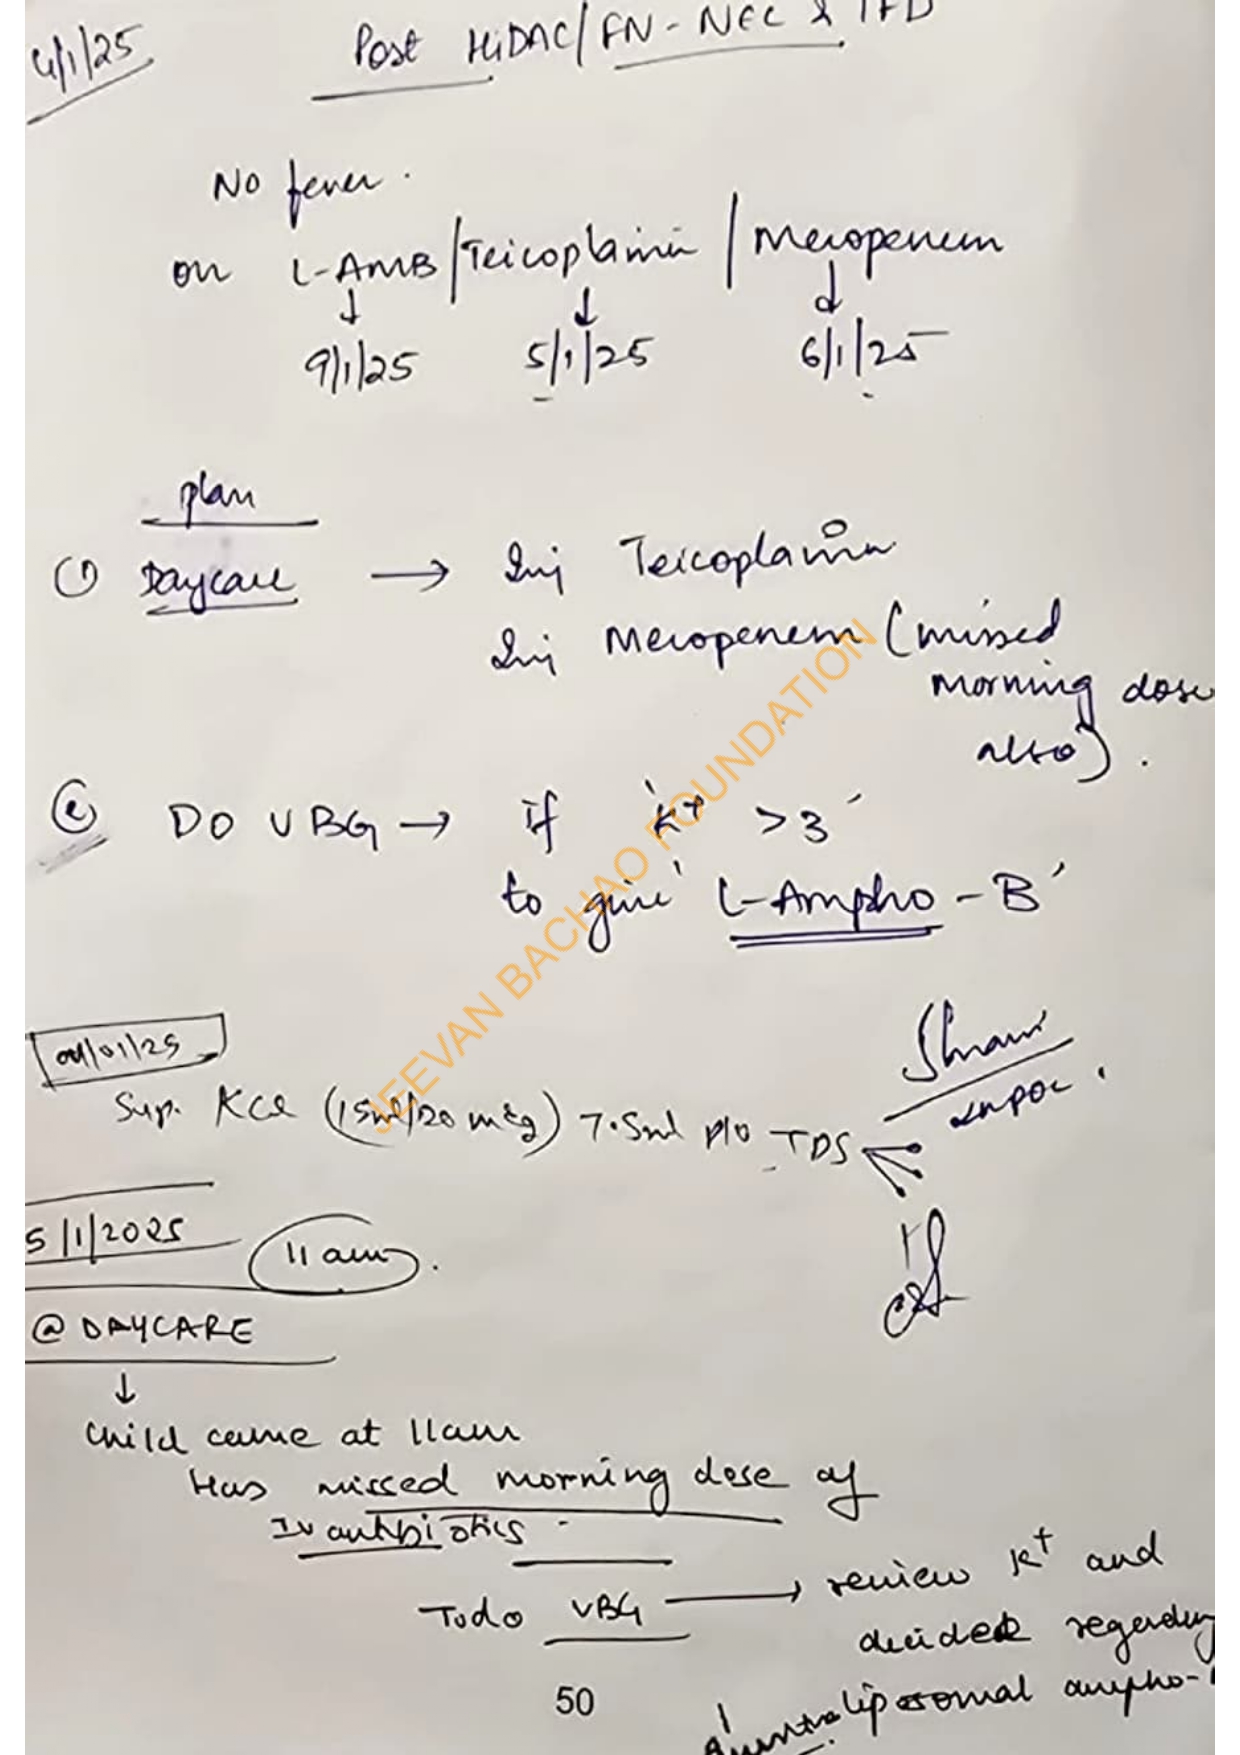 4/1/25
Post HiDAC/FN-NEC & IFD
No fever.
on L-AMB/Teicoplanin/Meropenem
↓ ↓ ↓
9/1/25 5/1/25 6/1/25
plan
① Daycare → Inj Teicoplanin
Inj Meropenem (missed
morning dose
also).
② DO VBG → if K+ >3
to give L-Ampho-B
04/01/25
Syp. KCl (15ml/20 meq) 7.5ml p/o TDS
5/1/2025 11 am.
@ DAYCARE
↓
Child came at 11am
Has missed morning dose of
IV antibiotics
Todo VBG → review K+ and
decided regarding
liposomal ampho-
JEEVAN BACHAO FOUNDATION
50